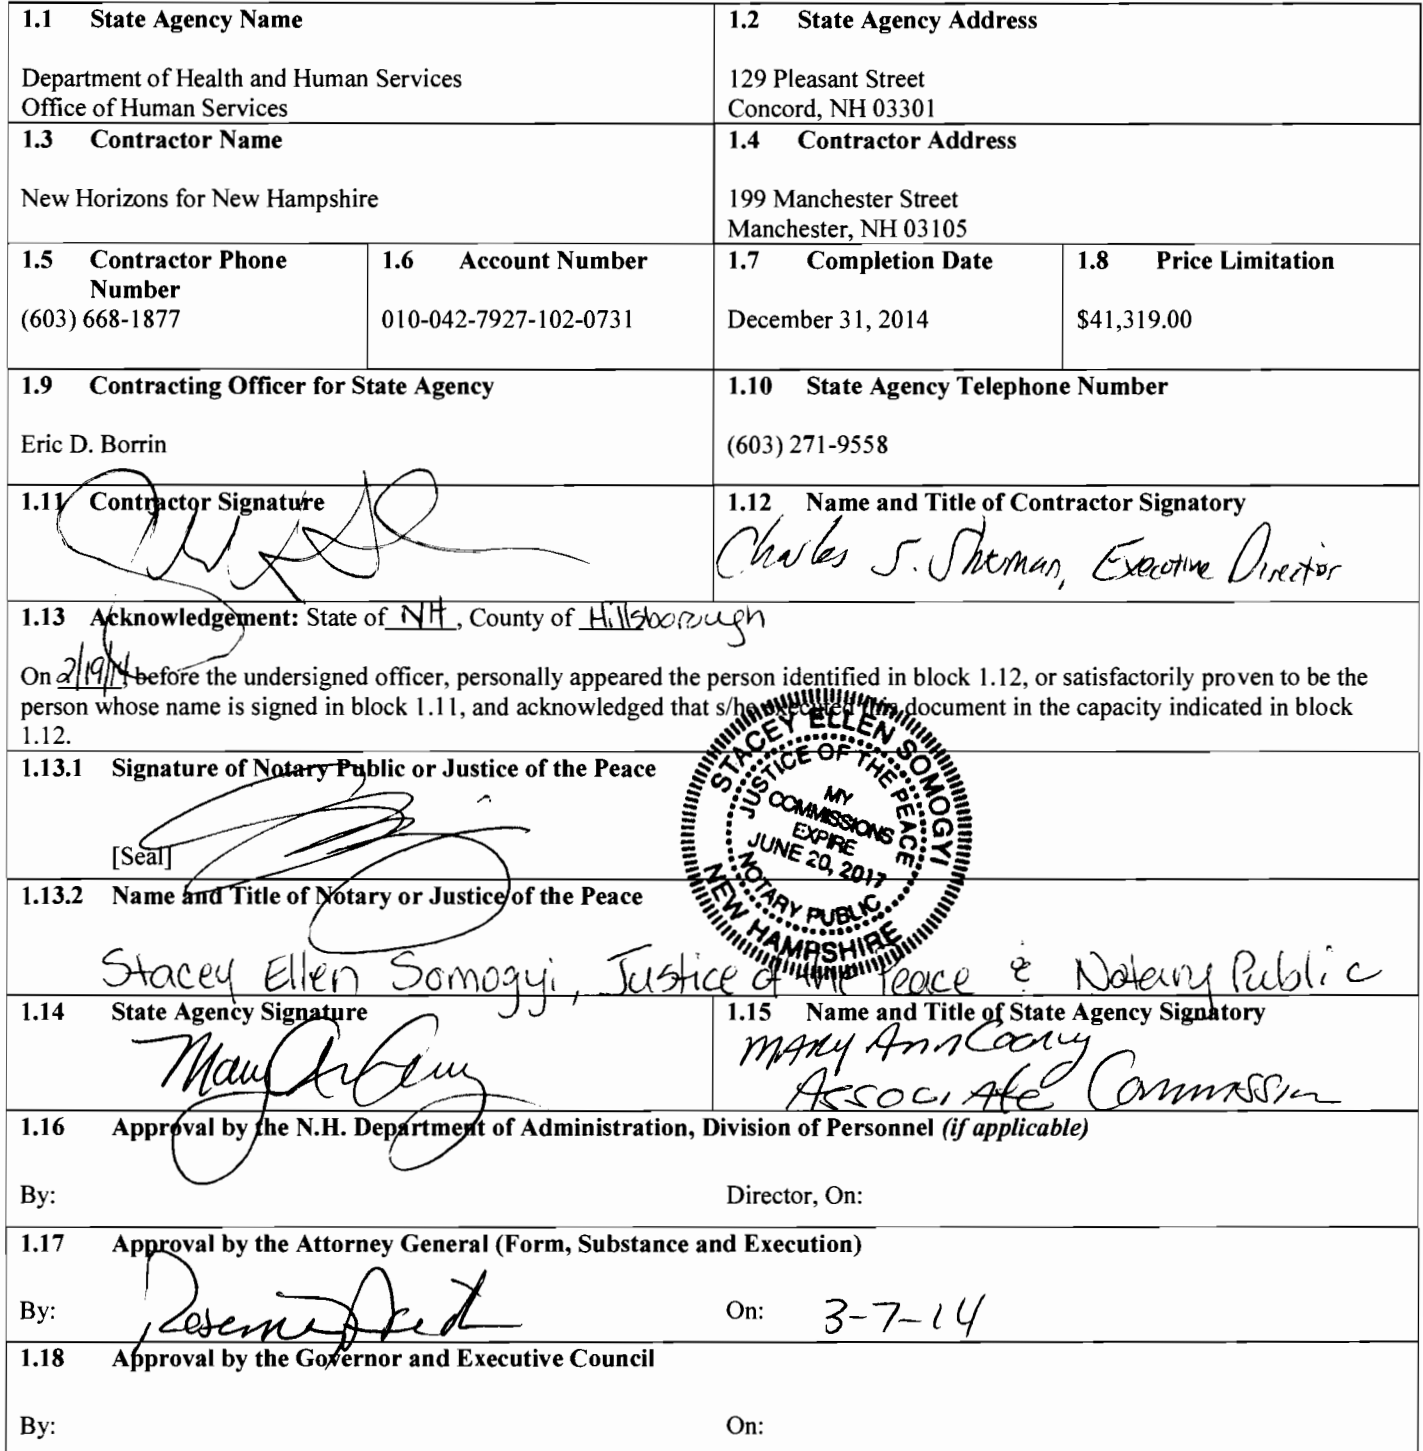 1.1 State Agency Name
Department of Health and Human Services
Office of Human Services
1.2 State Agency Address
129 Pleasant Street
Concord, NH 03301
1.3 Contractor Name
New Horizons for New Hampshire
1.4 Contractor Address
199 Manchester Street
Manchester, NH 03105
1.5 Contractor Phone
Number
(603) 668-1877
1.6 Account Number
010-042-7927-102-0731
1.7 Completion Date
December 31, 2014
1.8 Price Limitation
$41,319.00
1.9 Contracting Officer for State Agency
Eric D. Borrin
1.10 State Agency Telephone Number
(603) 271-9558
1.11 Contractor Signature
1.12 Name and Title of Contractor Signatory
Charles J. Sherman, Executive Director
1.13 Acknowledgement: State of NH, County of Hillsborough
On 2/19/14, before the undersigned officer, personally appeared the person identified in block 1.12, or satisfactorily proven to be the
person whose name is signed in block 1.11, and acknowledged that s/he executed this document in the capacity indicated in block
1.12.
1.13.1 Signature of Notary Public or Justice of the Peace
[Seal]
STACEY ELLEN SOMOGYI
JUSTICE OF THE PEACE
MY
COMMISSIONS
EXPIRE
JUNE 20, 2017
NOTARY PUBLIC
NEW HAMPSHIRE
1.13.2 Name and Title of Notary or Justice of the Peace
Stacey Ellen Somogyi, Justice of the Peace & Notary Public
1.14 State Agency Signature
1.15 Name and Title of State Agency Signatory
Mary Ann Cooney
Associate Commission
1.16 Approval by the N.H. Department of Administration, Division of Personnel (if applicable)
By:
Director, On:
1.17 Approval by the Attorney General (Form, Substance and Execution)
By:
On: 3-7-14
1.18 Approval by the Governor and Executive Council
By:
On: